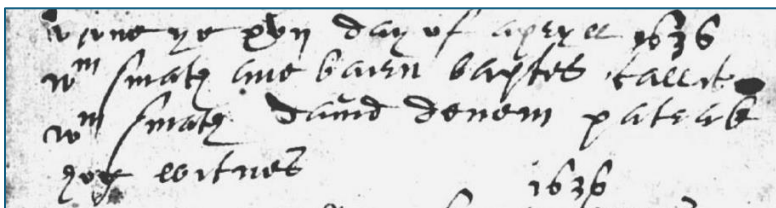 vpone ye xvii day of apryll 1636
wm smath ane bairn baptes callit
wm smath david denom patrik
hog witnes
1636